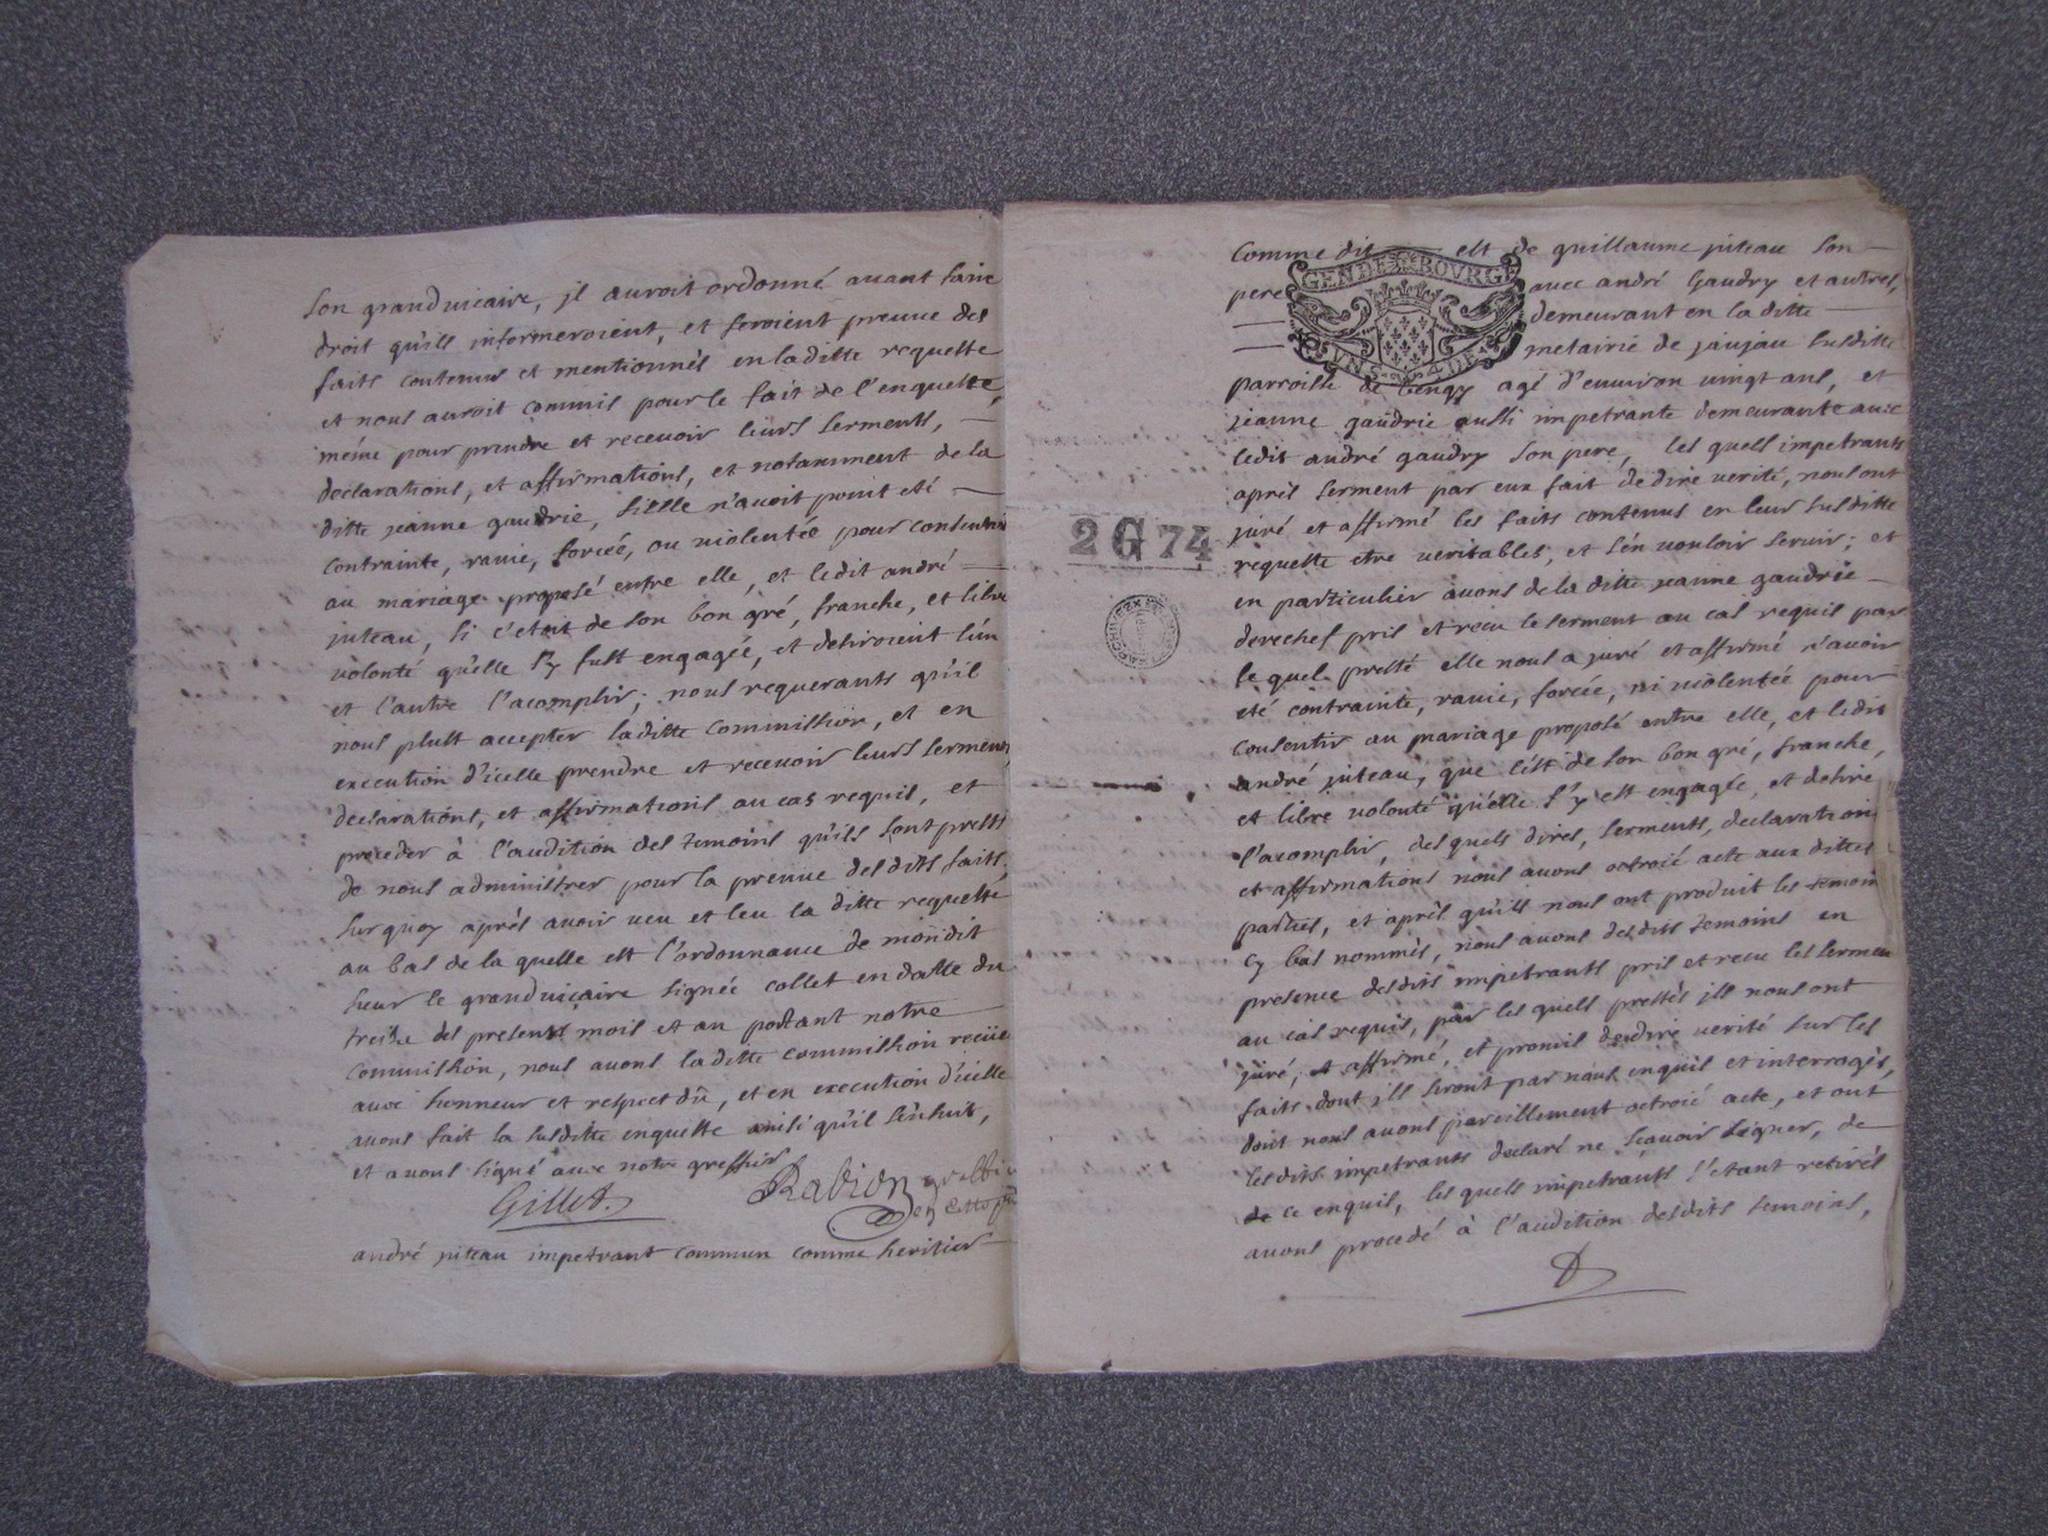 son grandvicaire, jl auroit ordonné avant faire
droit qu'ils informeroient, et feroient preuve des
faits contenus et mentionnés en laditte requeste
et nous auroit commis pour le fait de l'enqueste,
même pour prendre et recevoir leurs serments,
declarations, et affirmations, et notamment de la
ditte jeanne gaudrie, si elle n'avoit point eté
contrainte, ravie, forcée, ou violentée pour consentir
au mariage proposé entre elle, et ledit andré
juteau, si c'etoit de son bon gré, franche, et libre
volonté qu'elle s'y fust engagée, et desiroient l'un
et l'autre l'acomplir; nous requerants qu'il
nous plust accepter laditte commission, et en
execution d'icelle prendre et recevoir leurs serments,
declarations, et affirmations au cas requis, et
proceder à l'audition des temoins qu'ils sont prests
de nous administrer pour la preuve desdits faits,
surquoy aprés avoir veu et leu la ditte requeste
au bas de la quelle est l'ordonnance de mondit
sieur le grandvicaire signée collet en datte du
treize des presents mois et an portant notre
commission, nous avons laditte commission reçüe
avec honneur et respect dû, et en execution d'icelle
avons fait la susditte enqueste ainsi qu'il s'ensuit,
et avons signé avec notre greffier
Gillet. Rabion
andré juteau impetrant commun comme heritier
comme dit est de guillaume juteau son
GEN DE BOVRGE
pere avec andré Gaudry et autres,
demeurant en la ditte
metairie de jaujau susditte
parroisse de bengy agé d'environ vingt ans, et
jeanne gaudrie aussi impetrante demeurante avec
ledit andré gaudry son pere, les quels impetrants
aprés serment par eux fait de dire verité, nous ont
juré et affirmé les faits contenus en leur susditte
2 G 74
requette etre veritables, et s'en vouloir servir; et
en particulier avons de la ditte jeanne gaudrie
derechef pris et recu le serment au cas requis par
le quel presté elle nous a juré et affirmé n'avoir
eté contrainte, ravie, forcée, ni violentée pour
consentir au mariage proposé entre elle, et ledit
andré juteau, que c'est de son bon gré, franche,
et libre volonté qu'elle s'y est engagée, et desire
l'acomplir, des quels dires, serments, declarations
et affirmations nous avons octroié acte aux dittes
parties, et aprés qu'ils nous ont produit les temoin
cy bas nommés, nous avons desdits temoins en
presence desdits impetrants pris et recu les sermen
au cas requis, par les quels prestés jls nous ont
juré, et affirmé, et promis de dire verité sur les
faits dont jls seront par nous enquis et interrogés,
dont nous avons pareillement octroié acte, et ont
lesdits impetrants declaré ne sçavoir signer, de
de ce enquis, les quels impetrants s'etant retirés
avons procedé à l'audition desdits temoins,